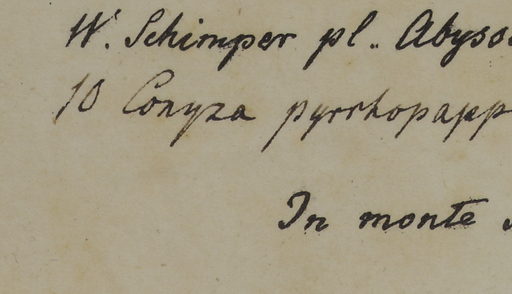 W. Schimper pl.. Abyss
10 Conyza pyrrhopapp
In monte